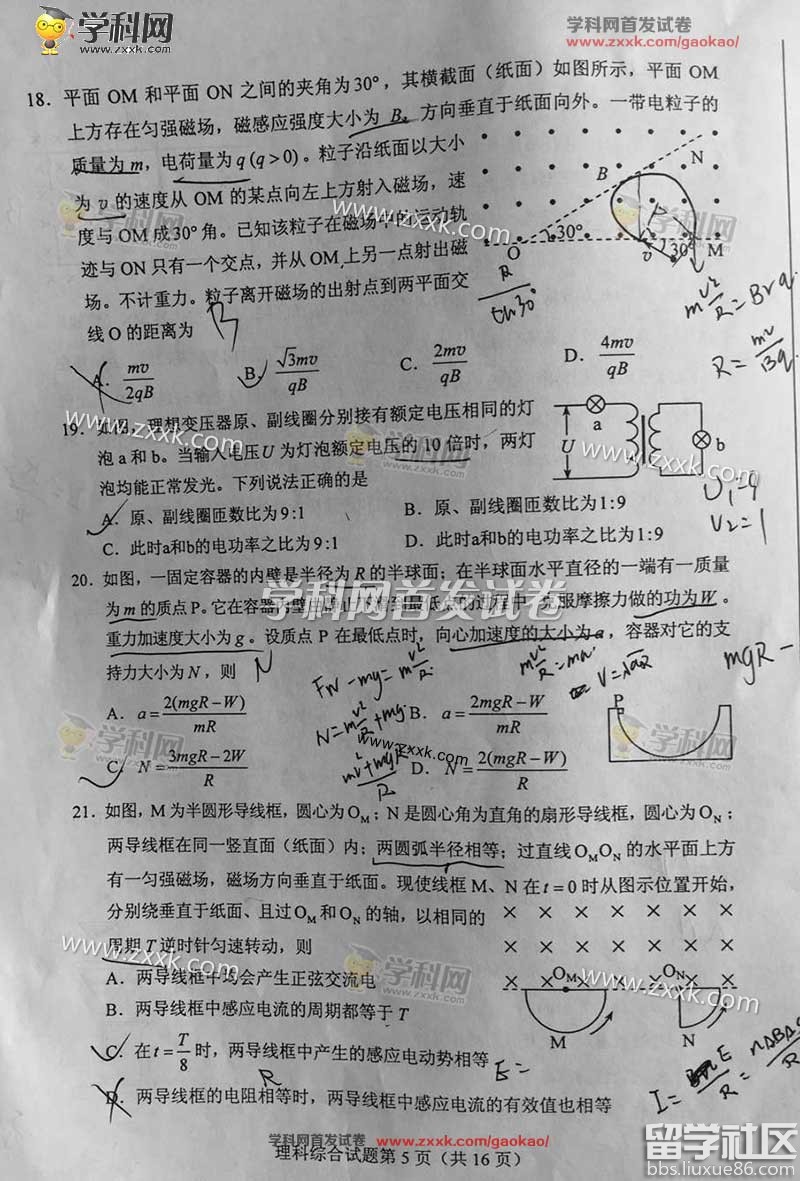 学科网
www.zxxk.com
学科网首发试卷
www.zxxk.com/gaokao/
18. 平面 OM 和平面 ON 之间的夹角为30°，其横截面（纸面）如图所示，平面 OM
上方存在匀强磁场，磁感应强度大小为 B，方向垂直于纸面向外。一带电粒子的
质量为 m，电荷量为 q (q > 0)。粒子沿纸面以大小
为 v 的速度从 OM 的某点向左上方射入磁场，速
度与 OM 成30°角。已知该粒子在磁场中的运动轨
迹与 ON 只有一个交点，并从 OM 上另一点射出磁
场。不计重力。粒子离开磁场的出射点到两平面交
线 O 的距离为
B
N
O
30°
v
30°
M
R
m v²/R = Bvq
R = mv/Bq
A. mv/2qB
B. √3mv/qB
C. 2mv/qB
D. 4mv/qB
19. 如图，理想变压器原、副线圈分别接有额定电压相同的灯
泡 a 和 b。当输入电压U 为灯泡额定电压的 10 倍时，两灯
泡均能正常发光。下列说法正确的是
A. 原、副线圈匝数比为9:1
B. 原、副线圈匝数比为1:9
C. 此时a和b的电功率之比为9:1
D. 此时a和b的电功率之比为1:9
a
U
b
U₁=9
U₂=1
20. 如图，一固定容器的内壁是半径为 R 的半球面；在半球面水平直径的一端有一质量
为 m 的质点 P。它在容器内壁由静止下滑到最低点的过程中，克服摩擦力做的功为W。
重力加速度大小为 g。设质点 P 在最低点时，向心加速度的大小为 a，容器对它的支
持力大小为 N，则
N
FN-mg=m v²/R
N=m v²/R+mg
mgR -
P
A. a = 2(mgR-W)/mR
B. a = 2mgR-W/mR
C. N = 3mgR-2W/R
D. N = 2(mgR-W)/R
21. 如图，M 为半圆形导线框，圆心为 O_M；N 是圆心角为直角的扇形导线框，圆心为 O_N；
两导线框在同一竖直面（纸面）内；两圆弧半径相等；过直线 O_M O_N 的水平面上方
有一匀强磁场，磁场方向垂直于纸面。现使线框 M、N 在 t = 0 时从图示位置开始，
分别绕垂直于纸面、且过 O_M 和 O_N 的轴，以相同的
周期 T 逆时针匀速转动，则
O_M
O_N
M
N
A. 两导线框中均会产生正弦交流电
B. 两导线框中感应电流的周期都等于 T
C. 在 t = T/8 时，两导线框中产生的感应电动势相等
D. 两导线框的电阻相等时，两导线框中感应电流的有效值也相等
R
E=
学科网首发试卷
www.zxxk.com/gaokao/
理科综合试题第 5 页（共 16 页）
留学社区
bbs.liuxue86.com